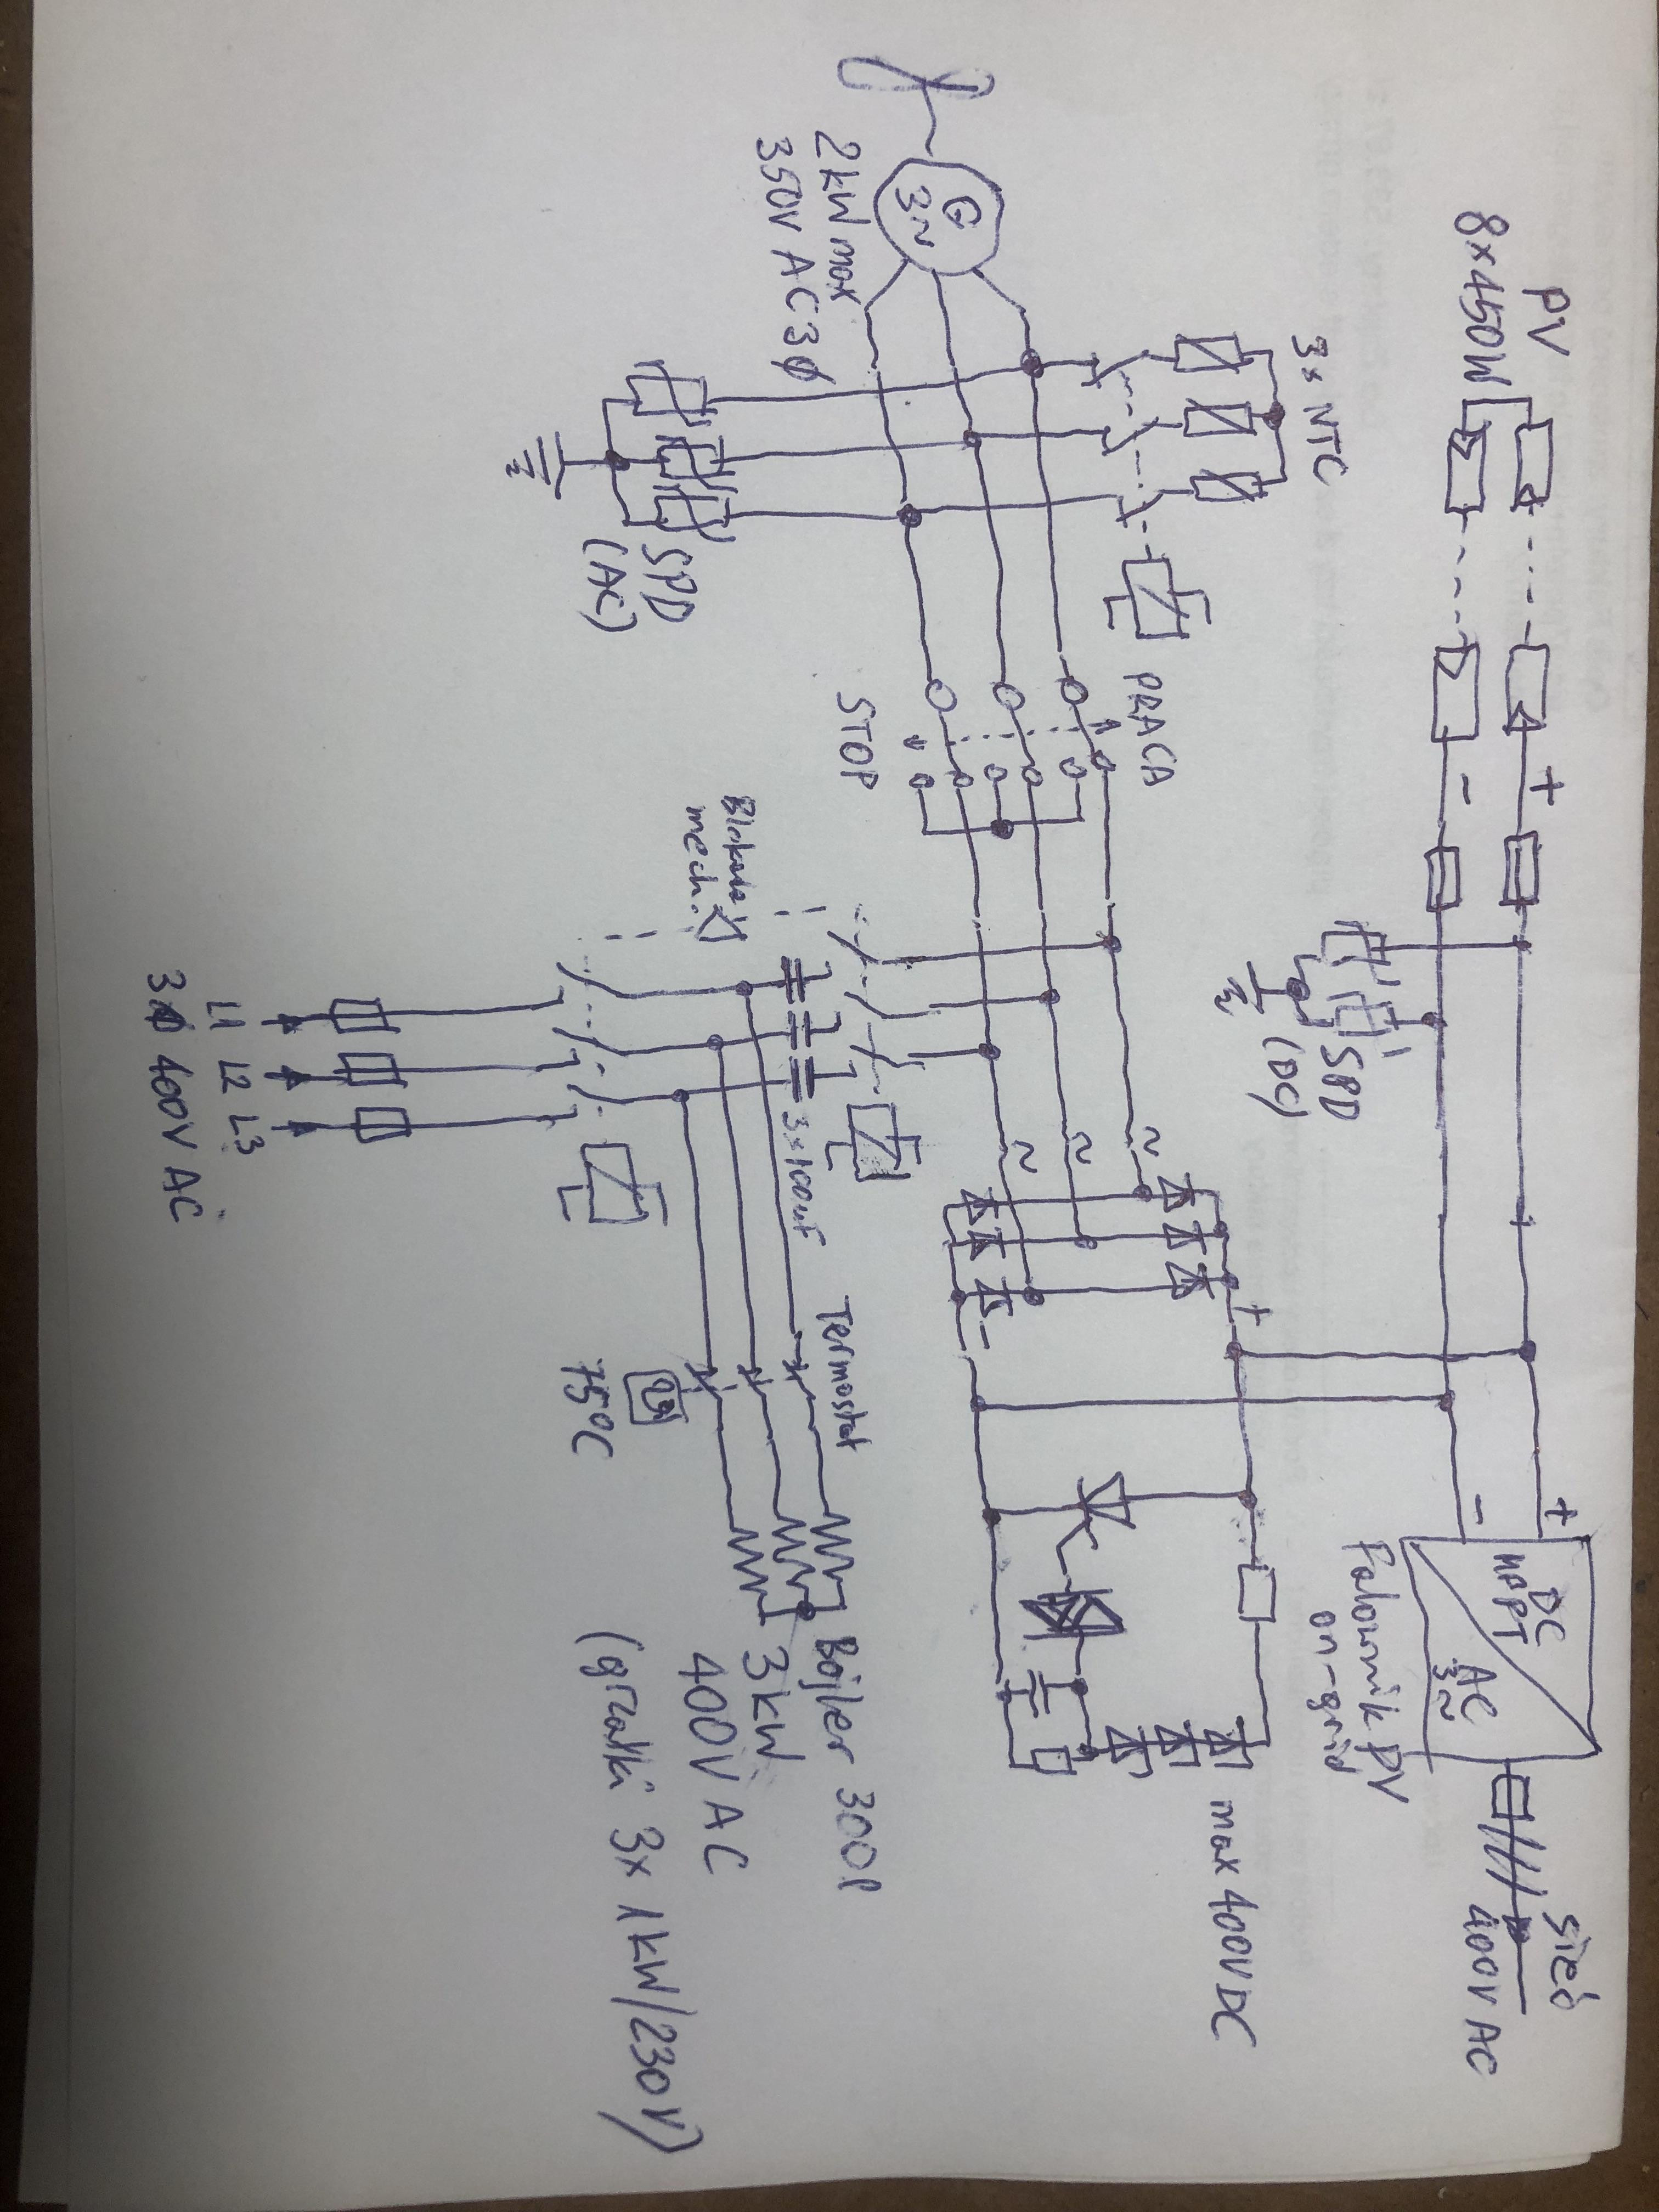 PV
8x450W
+
-
SPD
(DC)
+
-
DC
MPPT
AC
3~
Falownik PV
on-grid
sieć
400V AC
3x NTC
G
3~
2kW max
350V AC 3ϕ
SPD
(AC)
PRACA
STOP
~
~
~
+
-
max 400VDC
Blokada
mech.
3x100uF
Termostat
75°C
Bojler 300l
3kW
400V AC
(grzałki 3x 1kW/230V)
L1 L2 L3
3ϕ 400V AC